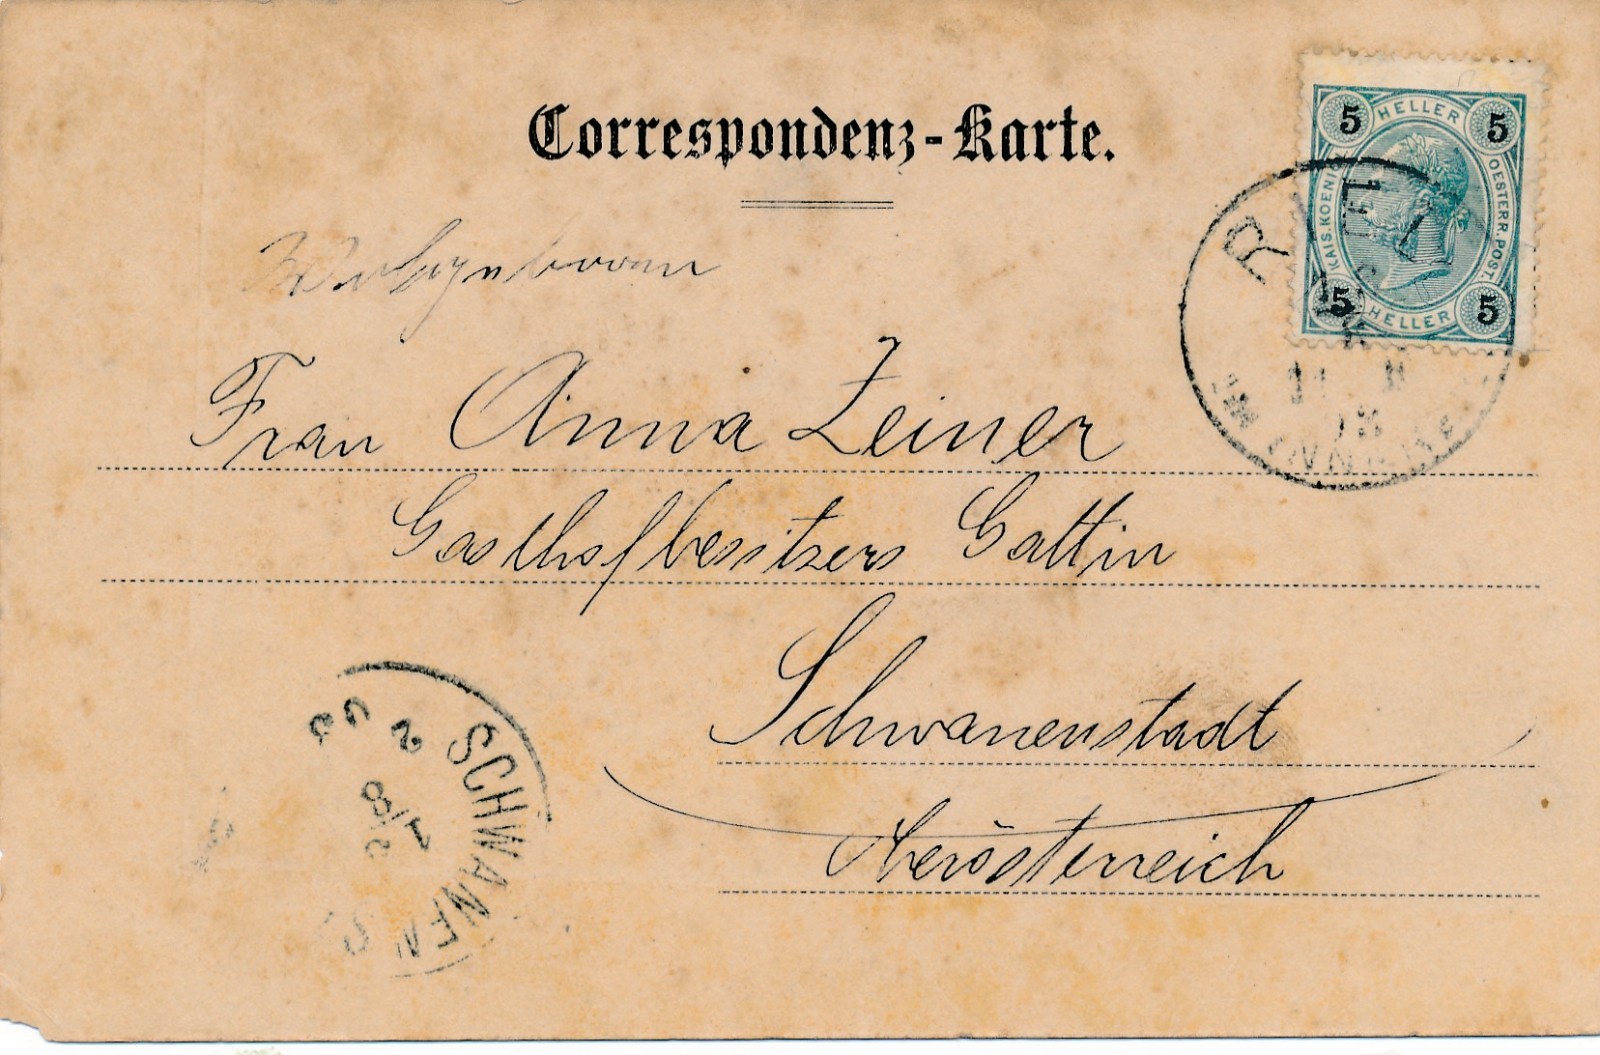 Correspondenz-Karte.
5 HELLER 5
KAIS. KOENIGL. OESTERR. POST.
5 HELLER 5
Wohlgeboren
Frau Anna Zeiner
Gasthofbesitzers Gattin
Schwanenstadt
Oberösterreich
SCHWANEN
1/8